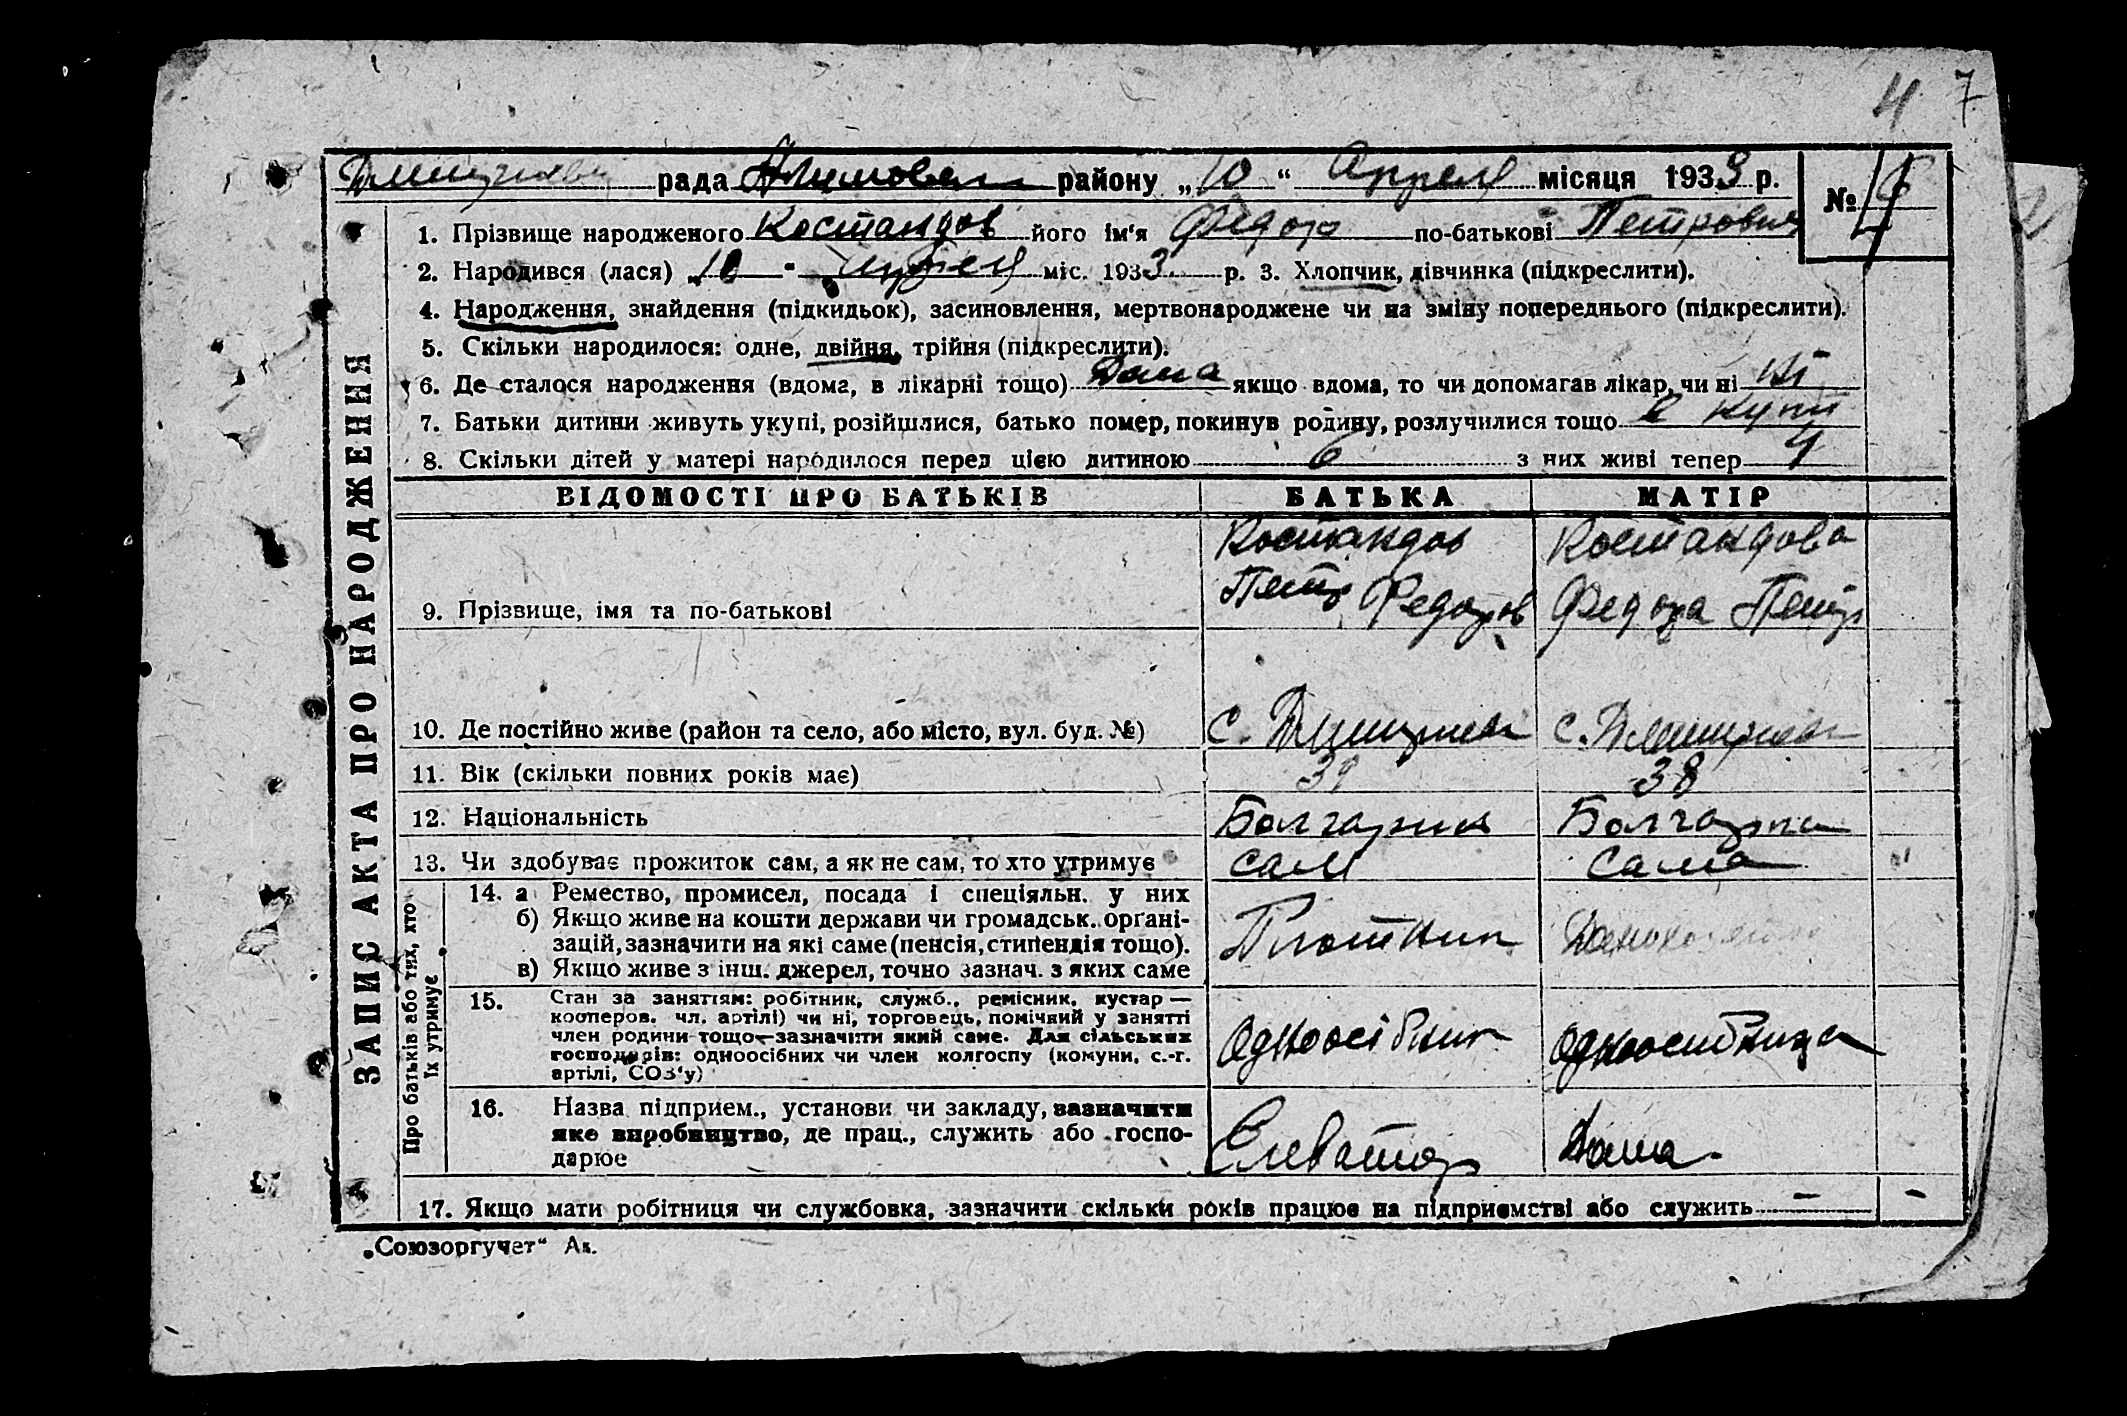 4 7
рада района „10“ Апреля місяця 1933 р. №
1. Прізвище народженого Костандов його ім'я Федор по-батькові Петрович
2. Народився (лася) „10“ апреля міс. 1933 р. 3. Хлопчик, дівчинка (підкреслити).
4. Народження, знайдення (підкидьок), засиновлення, мертвонароджене чи на зміну попереднього (підкреслити).
5. Скільки народилося: одне, двійня, трійня (підкреслити).
6. Де сталося народження (вдома, в лікарні тощо) Дома якщо вдома, то чи допомагав лікар, чи ні ні
7. Батьки дитини живуть укупі, розійшлися, батько помер, покинув родину, розлучилися тощо в купи
8. Скільки дітей у матері народилося перед цією дитиною 6 з них живі тепер 4
ЗАПИС АКТА ПРО НАРОДЖЕННЯ
ВІДОМОСТІ ПРО БАТЬКІВ БАТЬКА МАТІР
Костандов Костандова
9. Прізвище, імя та по-батькові Петр Федоров Федора Петр
10. Де постійно живе (район та село, або місто, вул. буд. №) с. с.
11. Вік (скільки повних років має) 38
12. Національність Болгарин Болгарка
13. Чи здобуває прожиток сам, а як не сам, то хто утримує сам сама
Про батьків або тих, хто їх утримує
14. а Ремество, промисел, посада і спеціяльн. у них
б) Якщо живе на кошти держави чи громадськ. орґані-
зацій, зазначити на які саме (пенсія, стипендія тощо). Плотник
в) Якщо живе з інш. джерел, точно зазнач. з яких саме
15. Стан за заняттям: робітник, служб., ремісник, кустар —
кооперов. чл. артілі) чи ні, торговець, помічний у занятті
член родини тощо—зазначити який саме. Для сільських
господарів: одноосібних чи член колгоспу (комуни, с.-г. Одноосібник одноосибница
артілі, СОЗ'у)
16. Назва підприєм., установи чи закладу, зазначити
яке виробництво, де прац., служить або госпо- Елеватор Дома
дарює
17. Якщо мати робітниця чи службовка, зазначити скільки років працює на підприємстві або служить — -
„Союзоргучет“ Ак.